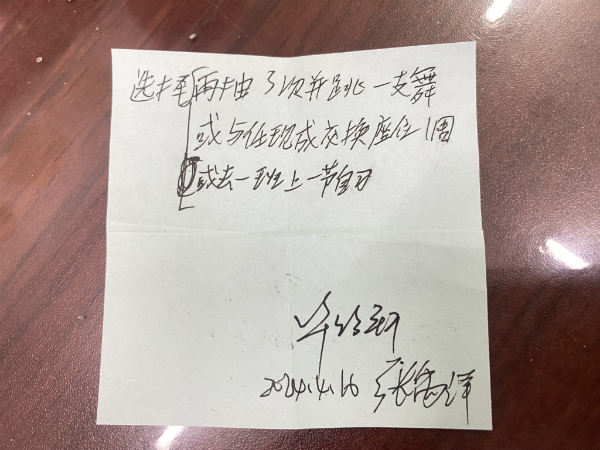 选择再抽3次并跳一支舞
或与任现成交换座位1周
或去一班上一节自习
2024.4.16